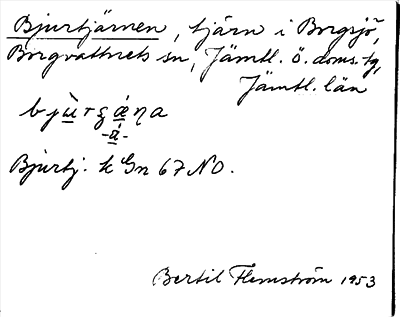 Bjurtjärnen, tjärn i Borgsjö,
Borgvattnets sn, Jämtl. ö. doms. tg,
Jämtl. län
bjùrʂǽŋa
-ǻ-
Bjurtj. k Gn 67 NO.
Bertil Flemström 1953